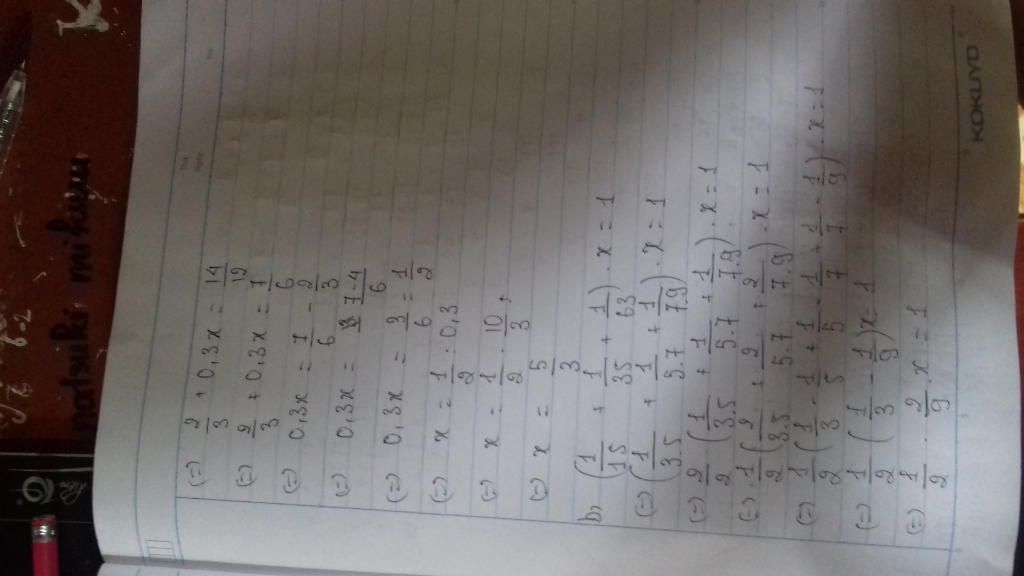 (=) 2/3 + 0,3x = 14/12
(=) 2/3 + 0,3x = 7/6
(=) 0,3x = 7/6 - 2/3
(=) 0,3x = 7-4/6
(=) 0,3x = 3/6 = 1/2
(=) x = 1/2 : 0,3
(=) x = 1/2 . 10/3
(=) x = 5/3
b, (1/15 + 1/35 + 1/63) . x = 1
(=) (1/3.5 + 1/5.7 + 1/7.9) . x = 1
(=) 2/2 (1/3.5 + 1/5.7 + 1/7.9) . x = 1
(=) 1/2 (2/3.5 + 2/5.7 + 2/7.9) . x = 1
(=) 1/2 (1/3 - 1/5 + 1/5 - 1/7 + 1/7 - 1/9) . x = 1
(=) 1/2 (1/3 - 1/9) x = 1
(=) 1/2 . 2/9 . x = 1
KOKUYO